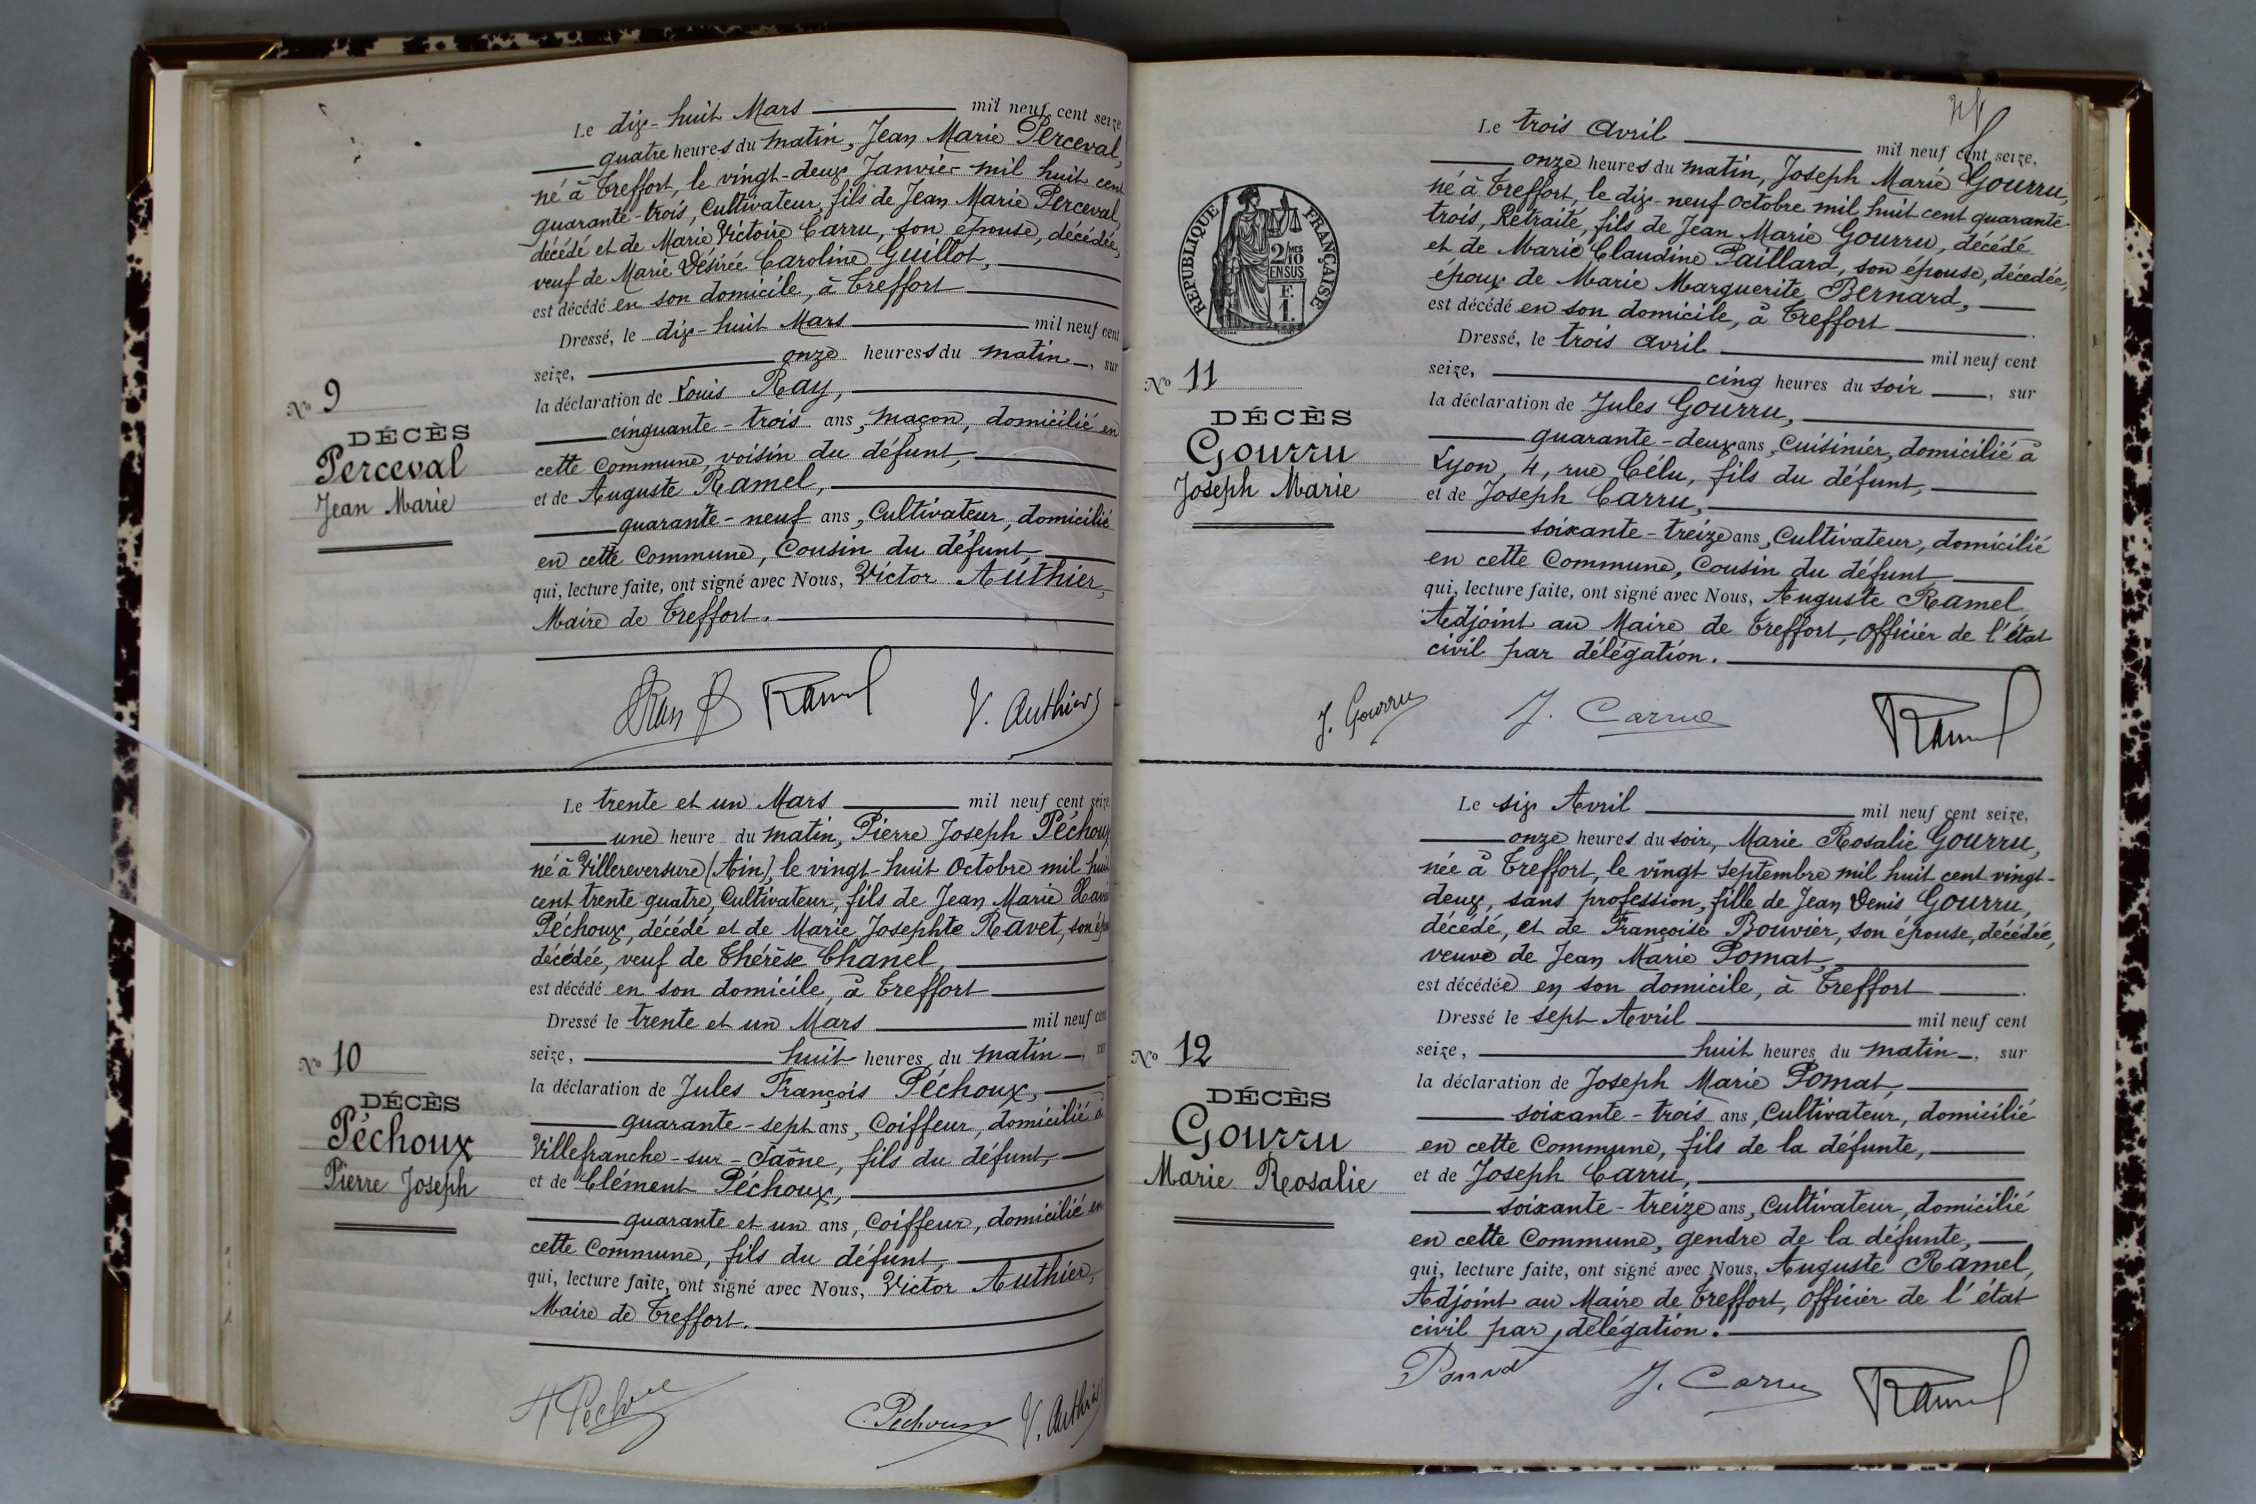 Le dix-huit Mars mil neuf cent seize
quatre heures du matin, Jean Marie Perceval,
né à Treffort, le vingt-deux Janvier mil huit cent
quarante-trois, Cultivateur, fils de Jean Marie Perceval
décédé et de Marie Victoire Carru, son épouse, décédée,
veuf de Marie Désirée Caroline Guillot,
est décédé en son domicile, à Treffort
Dressé, le dix-huit Mars mil neuf cent
seize, onze heures du matin, sur
la déclaration de Louis Ray,
cinquante-trois ans, maçon, domicilié en
cette Commune, voisin du défunt,
et de Auguste Ramel,
quarante-neuf ans, Cultivateur, domicilié
en cette Commune, Cousin du défunt,
qui, lecture faite, ont signé avec Nous, Victor Authier,
Maire de Treffort.
Nº 9
DÉCÈS
Perceval
Jean Marie
Ramel V. Authier
Le trente et un Mars mil neuf cent seize
une heure du matin, Pierre Joseph Péchoux
né à Villereversure (Ain), le vingt-huit Octobre mil huit
cent trente-quatre, Cultivateur, fils de Jean Marie
Péchoux, décédé et de Marie Josephte Ravet, son
décédée, veuf de Thérèse Chanel,
est décédé en son domicile, à Treffort
Dressé le trente et un Mars mil neuf cent
seize, huit heures du matin, sur
la déclaration de Jules François Péchoux,
quarante-sept ans, Coiffeur, domicilié à
Villefranche-sur-Saône, fils du défunt,
et de Clément Péchoux,
quarante et un ans, Coiffeur, domicilié en
cette Commune, fils du défunt,
qui, lecture faite, ont signé avec Nous, Victor Authier,
Maire de Treffort.
Nº 10
DÉCÈS
Péchoux
Pierre Joseph
C. Péchoux V. Authier
Le trois Avril mil neuf cent seize,
onze heures du matin, Joseph Marie Gourru,
né à Treffort, le dix-neuf Octobre mil huit cent quarante-
trois, Retraité, fils de Jean Marie Gourru, décédé
et de Marie Claudine Paillard, son épouse, décédée,
époux de Marie Marguerite Bernard,
est décédé en son domicile, à Treffort
Dressé, le trois Avril mil neuf cent
seize, cinq heures du soir, sur
la déclaration de Jules Gourru,
quarante-deux ans, Cuisinier, domicilié à
Lyon, 4, rue Célu, fils du défunt,
et de Joseph Carru,
soixante-treize ans, Cultivateur, domicilié
en cette Commune, Cousin du défunt
qui, lecture faite, ont signé avec Nous, Auguste Ramel
Adjoint au Maire de Treffort, Officier de l'état
civil par délégation.
RÉPUBLIQUE FRANÇAISE
2/10 MES
EN SUS
F.
1.
Nº 11
DÉCÈS
Gourru
Joseph Marie
J. Gourru J. Carru Ramel
Le six Avril mil neuf cent seize,
onze heures du soir, Marie Rosalie Gourru,
née à Treffort, le vingt Septembre mil huit cent vingt-
deux, sans profession, fille de Jean Denis Gourru,
décédé, et de Françoise Bouvier, son épouse, décédée,
veuve de Jean Marie Pomat,
est décédée en son domicile, à Treffort
Dressé le sept Avril mil neuf cent
seize, huit heures du matin, sur
la déclaration de Joseph Marie Pomat,
soixante-trois ans, Cultivateur, domicilié
en cette Commune, fils de la défunte,
et de Joseph Carru,
soixante-treize ans, Cultivateur, domicilié
en cette Commune, gendre de la défunte,
qui, lecture faite, ont signé avec Nous, Auguste Ramel,
Adjoint au Maire de Treffort, Officier de l'état
civil par délégation.
Nº 12
DÉCÈS
Gourru
Marie Rosalie
J. Carru Ramel